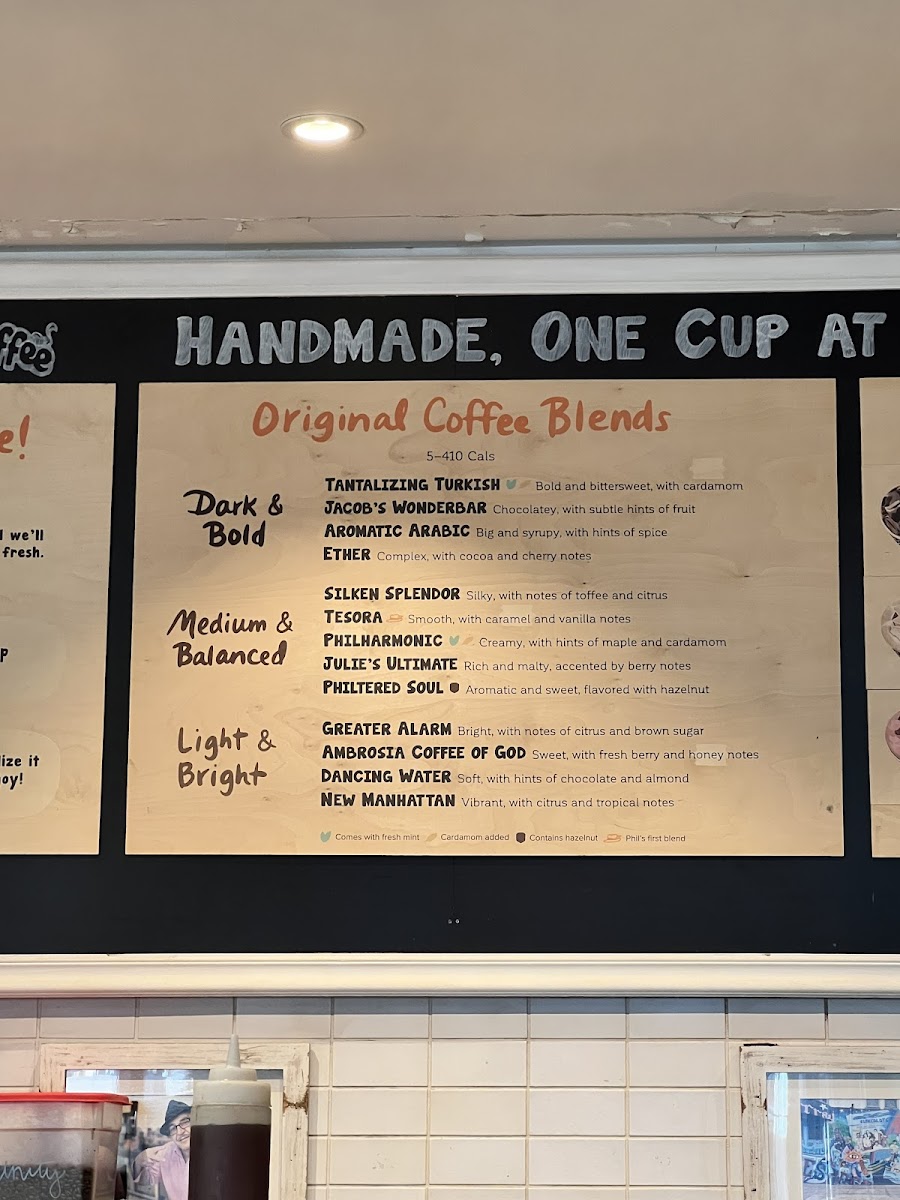 ffee
HANDMADE, ONE CUP AT
e!
l we'll
fresh.
P
lize it
oy!
Original Coffee Blends
5–410 Cals
Dark &
Bold
TANTALIZING TURKISH Bold and bittersweet, with cardamom
JACOB'S WONDERBAR Chocolatey, with subtle hints of fruit
AROMATIC ARABIC Big and syrupy, with hints of spice
ETHER Complex, with cocoa and cherry notes
Medium &
Balanced
SILKEN SPLENDOR Silky, with notes of toffee and citrus
TESORA Smooth, with caramel and vanilla notes
PHILHARMONIC Creamy, with hints of maple and cardamom
JULIE'S ULTIMATE Rich and malty, accented by berry notes
PHILTERED SOUL Aromatic and sweet, flavored with hazelnut
Light &
Bright
GREATER ALARM Bright, with notes of citrus and brown sugar
AMBROSIA COFFEE OF GOD Sweet, with fresh berry and honey notes
DANCING WATER Soft, with hints of chocolate and almond
NEW MANHATTAN Vibrant, with citrus and tropical notes
Comes with fresh mint Cardamom added Contains hazelnut Phil's first blend